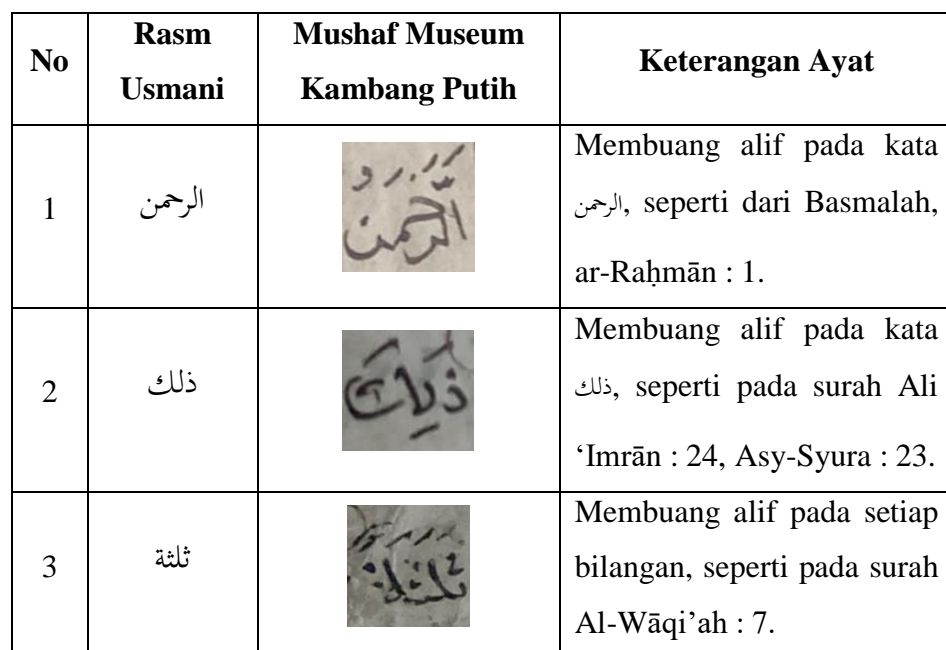 No
Rasm
Usmani
Mushaf Museum
Kambang Putih
Keterangan Ayat
1
الرحمن
اَلرَّحْمَنُ
Membuang alif pada kata
الرحمن, seperti dari Basmalah,
ar-Raḥmān : 1.
2
ذلك
ذَلِكَ
Membuang alif pada kata
ذلك, seperti pada surah Ali
‘Imrān : 24, Asy-Syura : 23.
3
ثلثة
Membuang alif pada setiap
bilangan, seperti pada surah
Al-Wāqi’ah : 7.